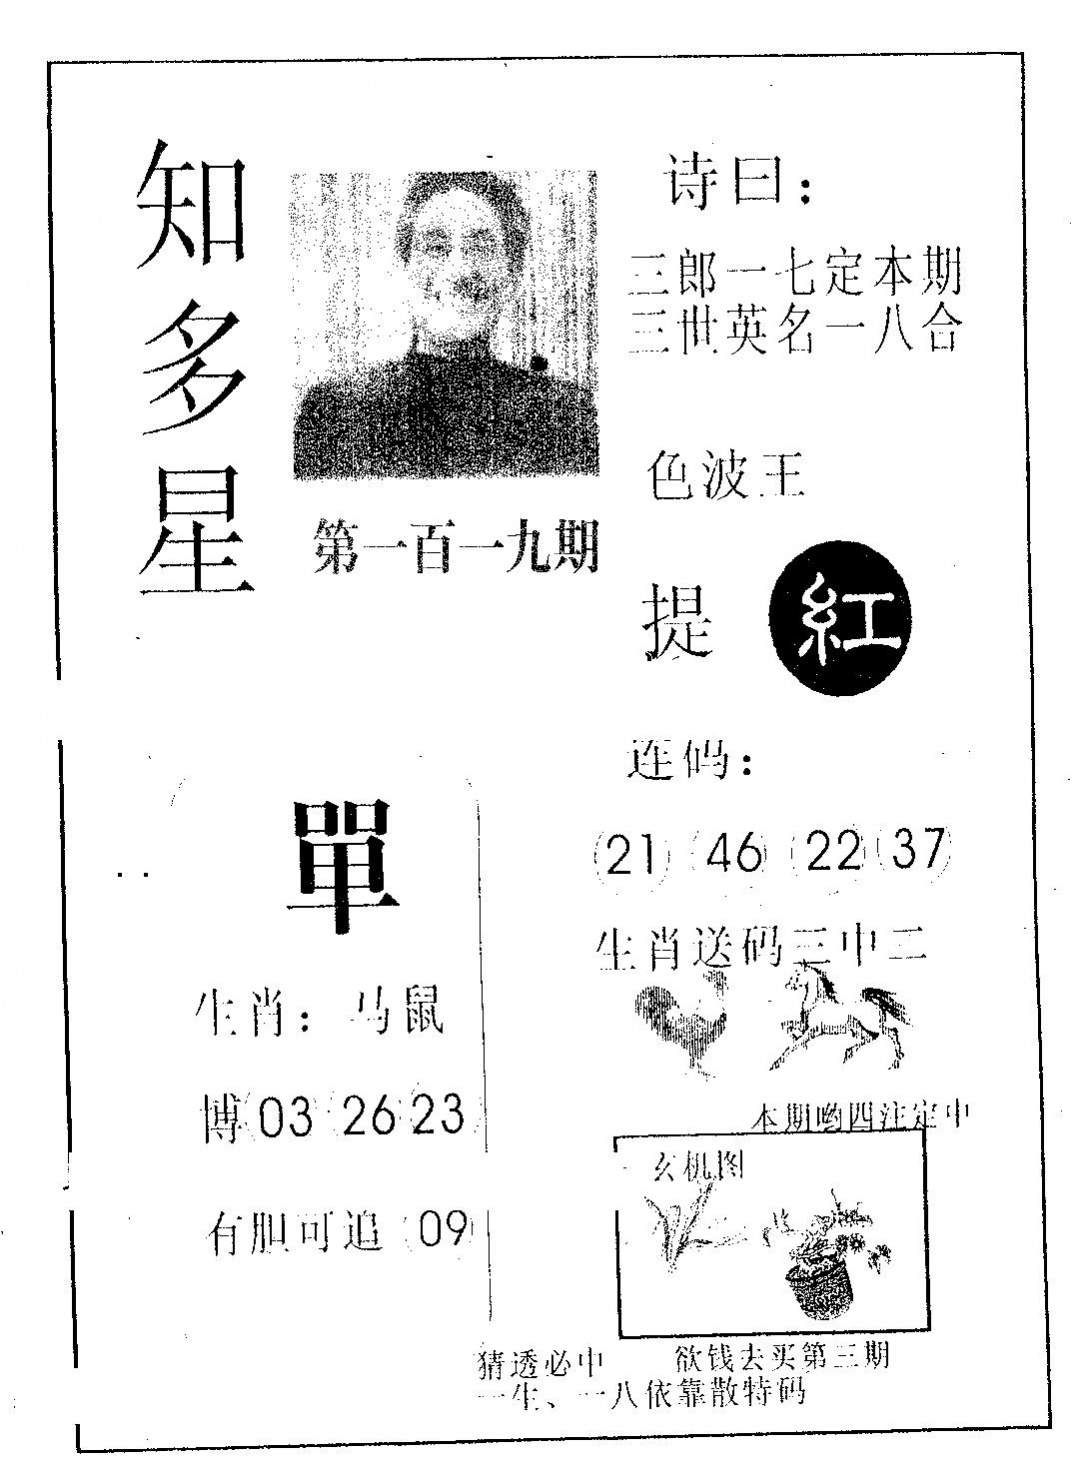 知多星
诗曰：
三郎一七定本期
三世英名一八合
第一百一九期
色波王
提 紅
單
生肖：马鼠
博 03 26 23
有胆可追 09
连码：
21 46 22 37
生肖送码三中二
本期哟四注定中
玄机图
猜透必中 欲钱去买第三期
一生、一八依靠散特码